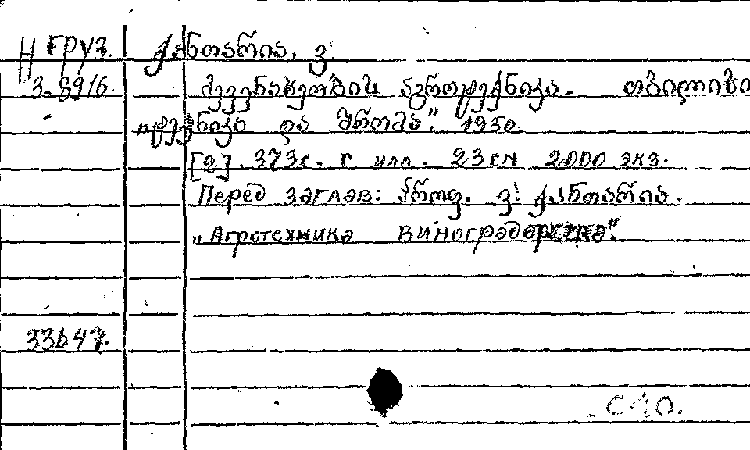 Н ГРУЗ.
3-8916.
ქანთარია, ვ.
მევენახეობის აგროტექნიკა. თბილისი
"ტექნიკა და შრომა". 1950
[2]. 373с. с илл. 23см 2000 экз.
Перед заглав: პროფ. ვ. ქანთარია.
„Агротехника виноградарства".
33647.